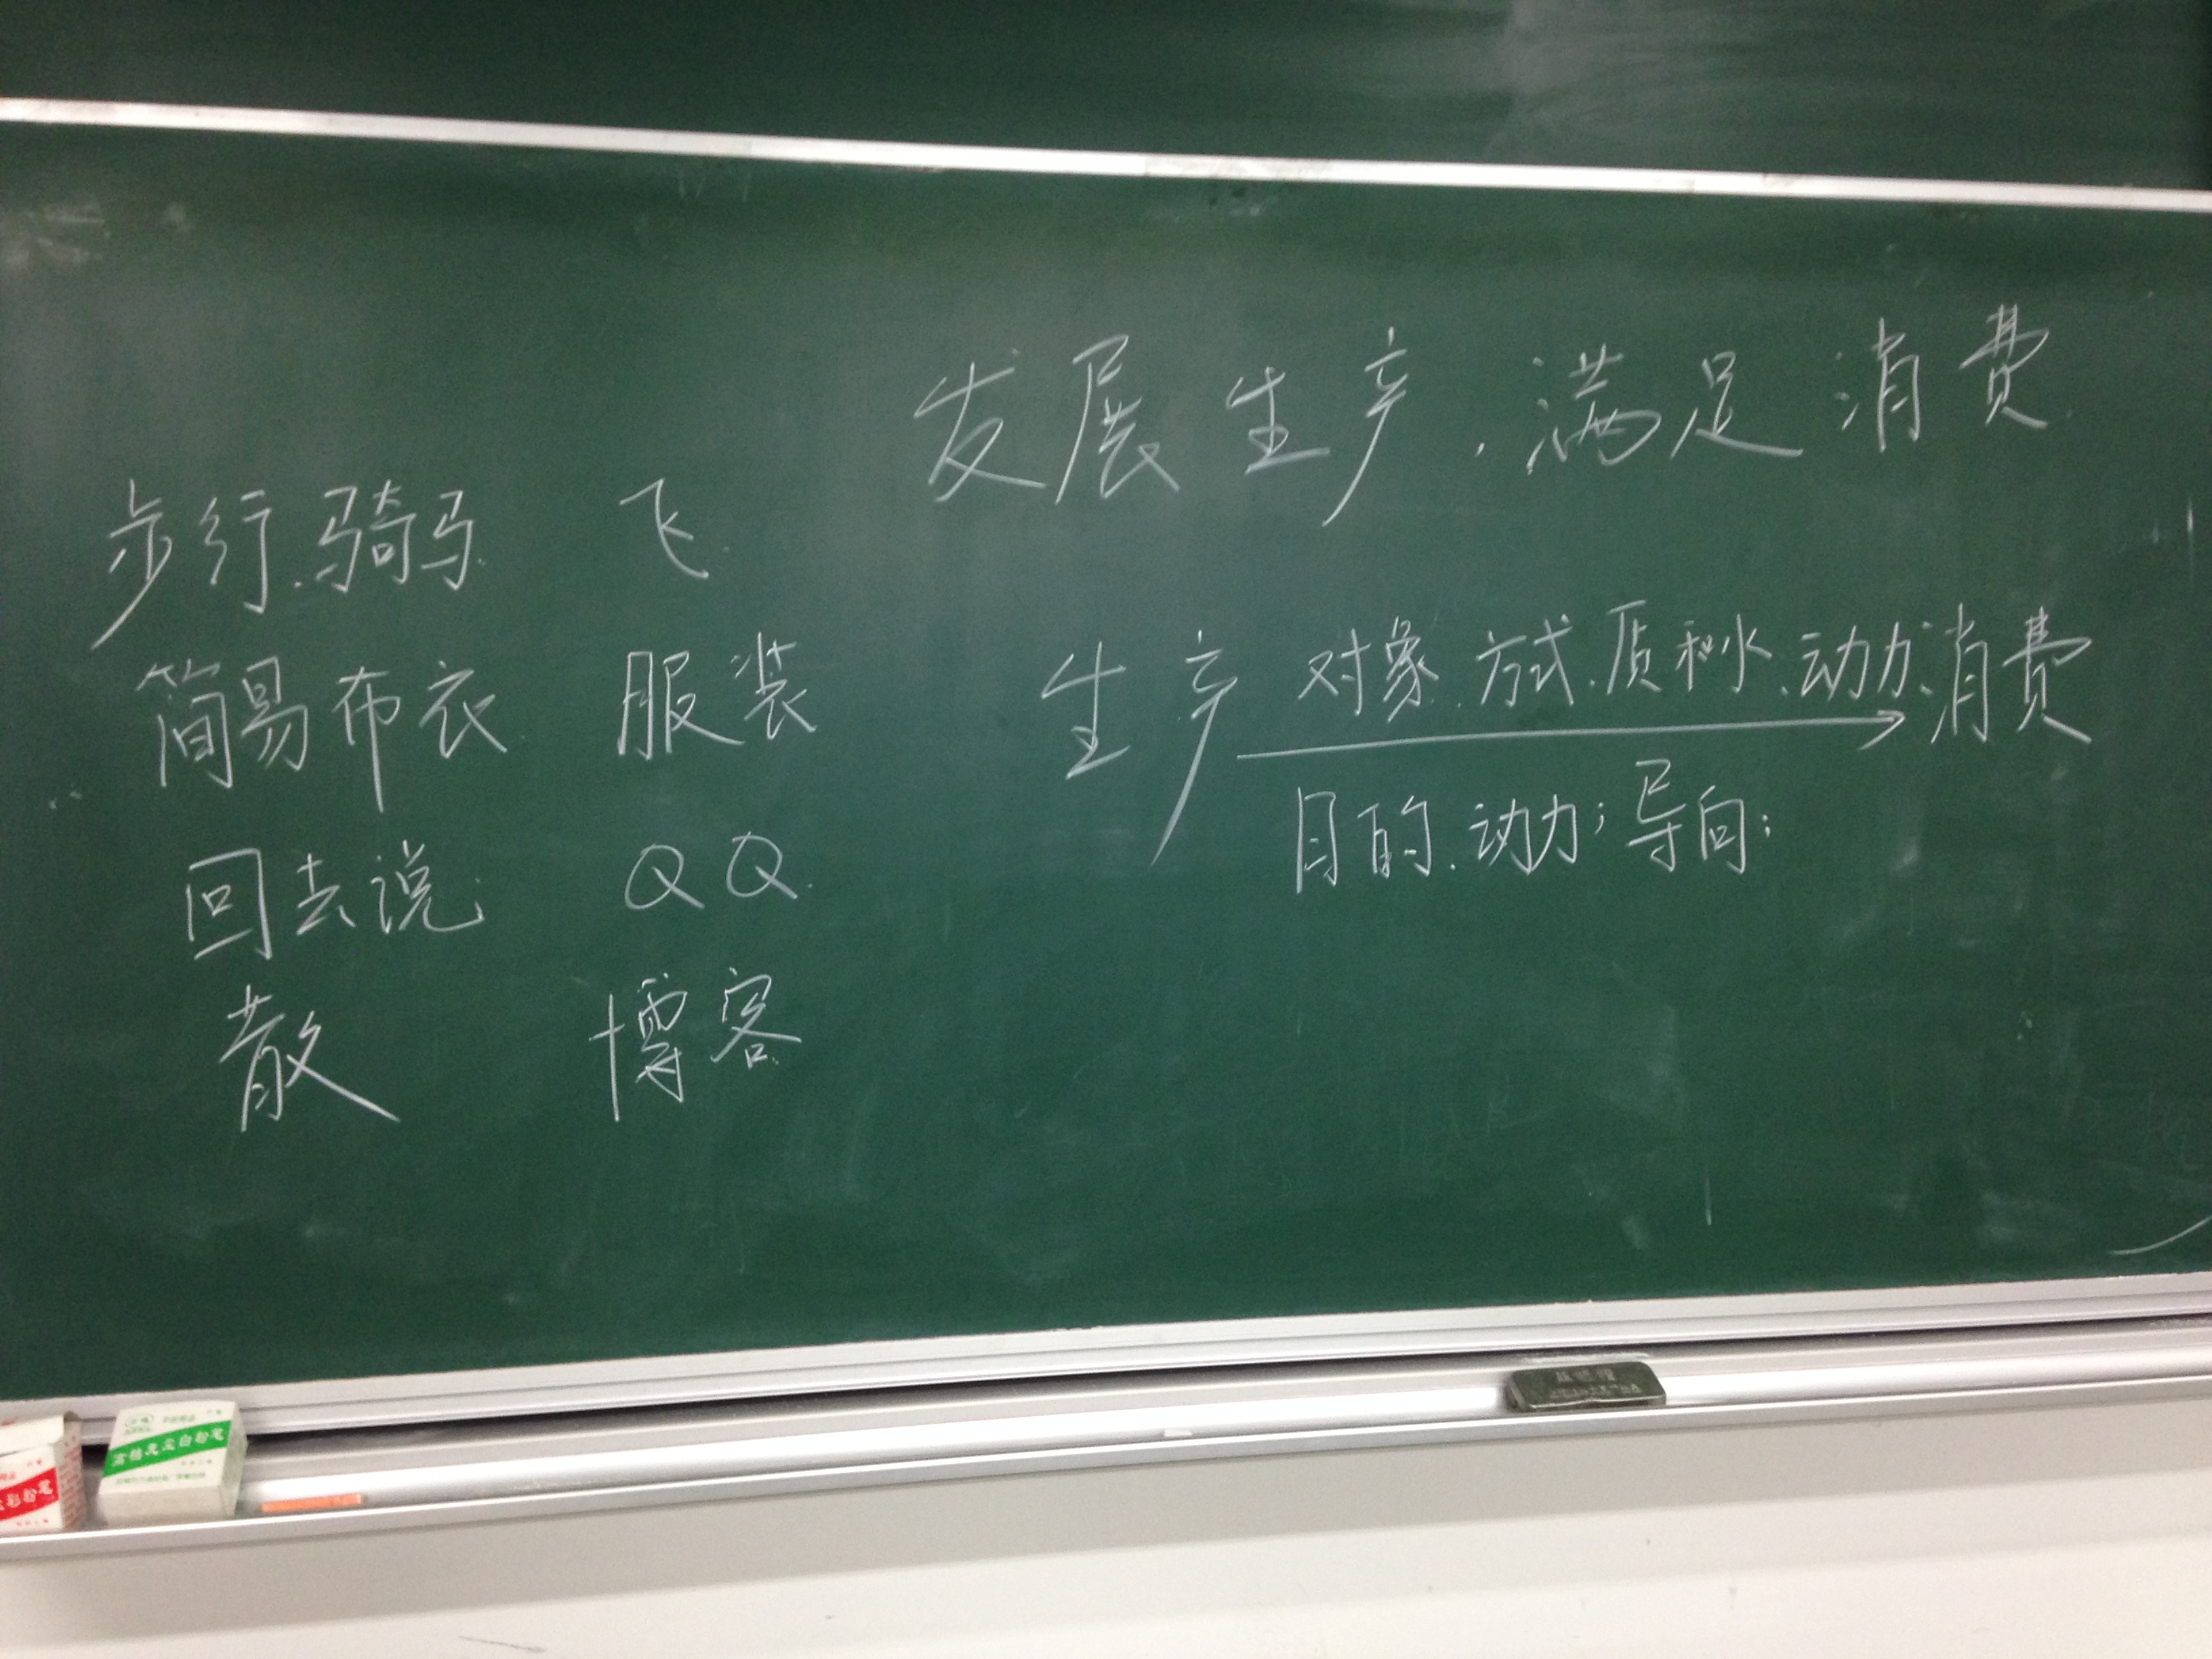 发展生产，满足消费
步行、骑马 飞
简易布衣 服装
回去说 QQ
散 博客
生产 对象、方式、质和水、动力 消费
目的、动力；导向；
高档无尘白粉笔
彩粉笔